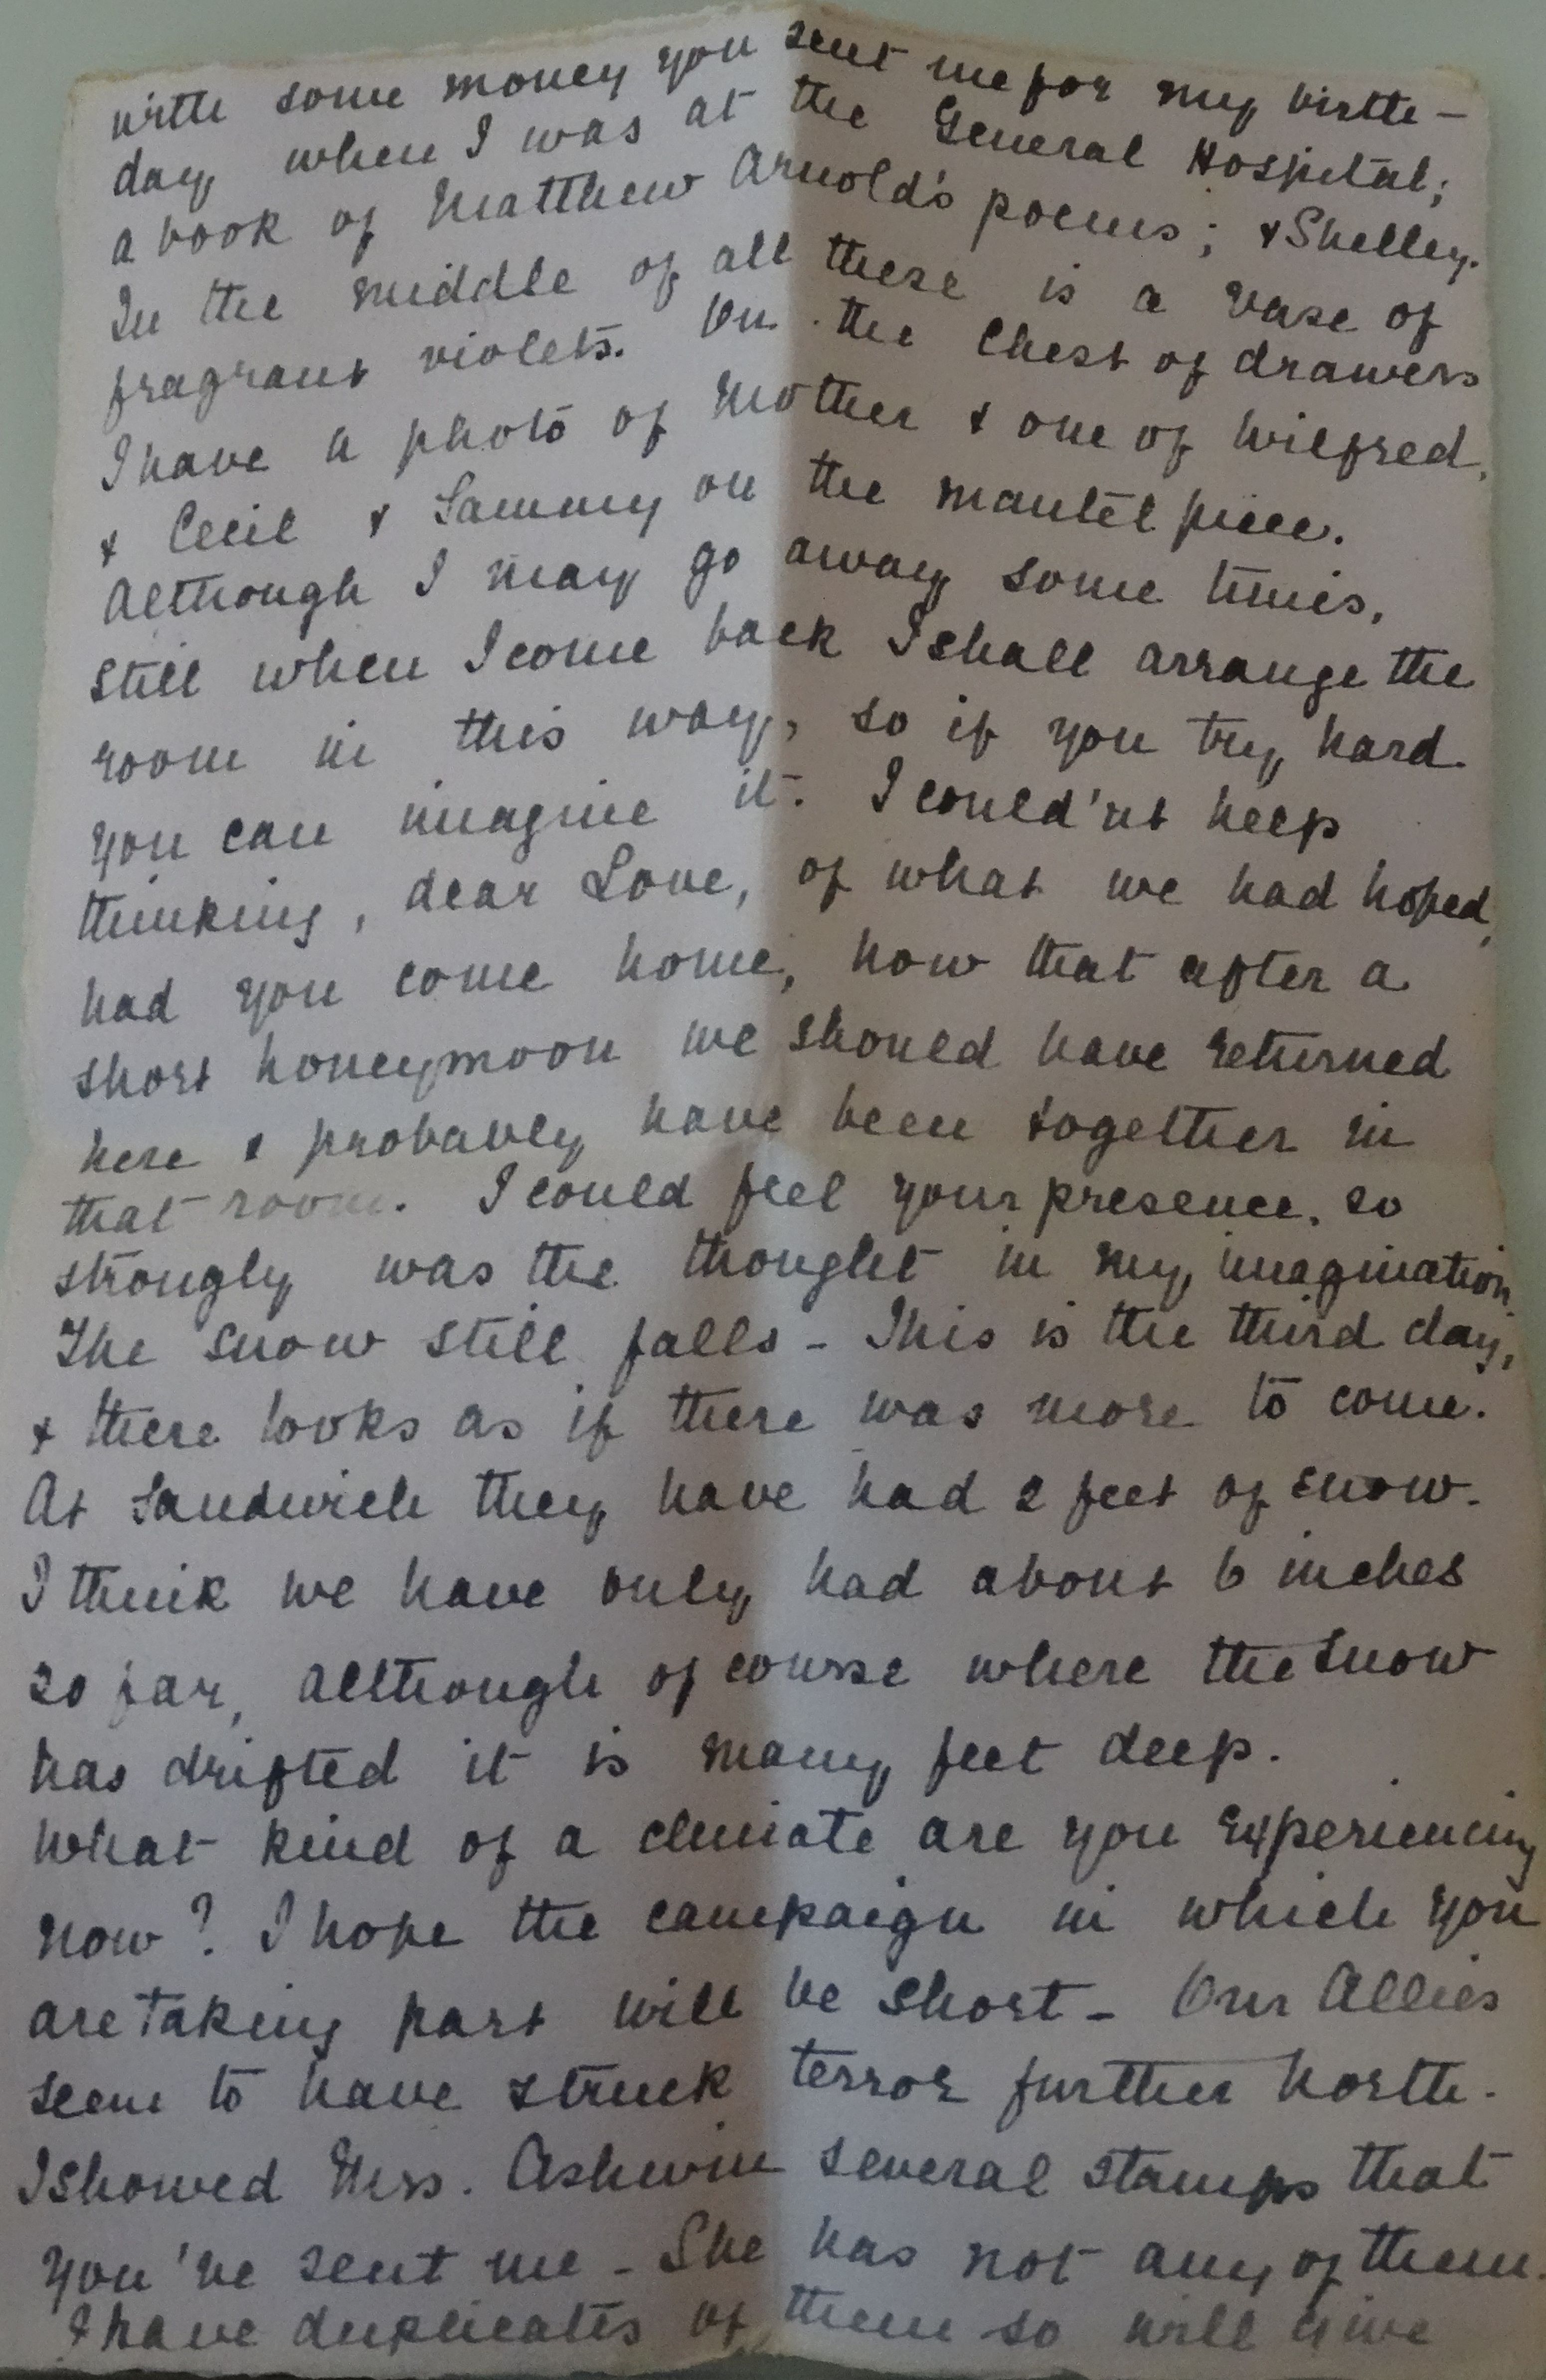 with some money you sent me for my birth-
day when I was at the General Hospital;
a book of Matthew Arnold's poems; & Shelley.
In the middle of all these is a vase of
fragrant violets. On the Chest of drawers
I have a photo of Mother & one of Wilfred,
& Cecil & Sammy on the mantel piece.
Although I may go away some times,
still when I come back I shall arrange the
room in this way, so if you try hard
you can imagine it. I could'nt help
thinking, dear Love, of what we had hoped,
had you come home, how that after a
short honeymoon we should have returned
here & probably have been together in
that room. I could feel your presence, so
strongly was the thought in my imagination.
The snow still falls - This is the third day,
& there looks as if there was more to come.
At Sandwich they have had 2 feet of snow.
I think we have only had about 6 inches
so far, although of course where the snow
has drifted it is many feet deep.
What kind of a climate are you experiencing
now? I hope the campaign in which you
are taking part will be short - Our Allies
seem to have struck terror further North.
I showed Mrs. Ashwin several stamps that
you've sent me - She has not any of them.
I have duplicates of them so will give